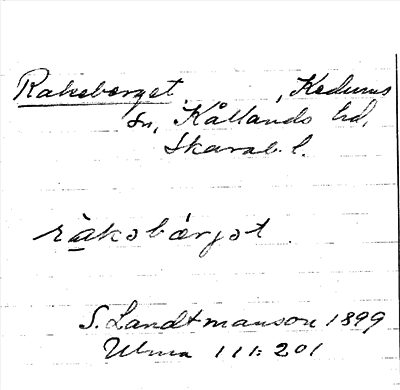 Rakeberget, Kedums
sn, Kållands hd,
Skarab. l.
ràkəbærjət.
S. Landtmanson 1899
Ulma 111:201